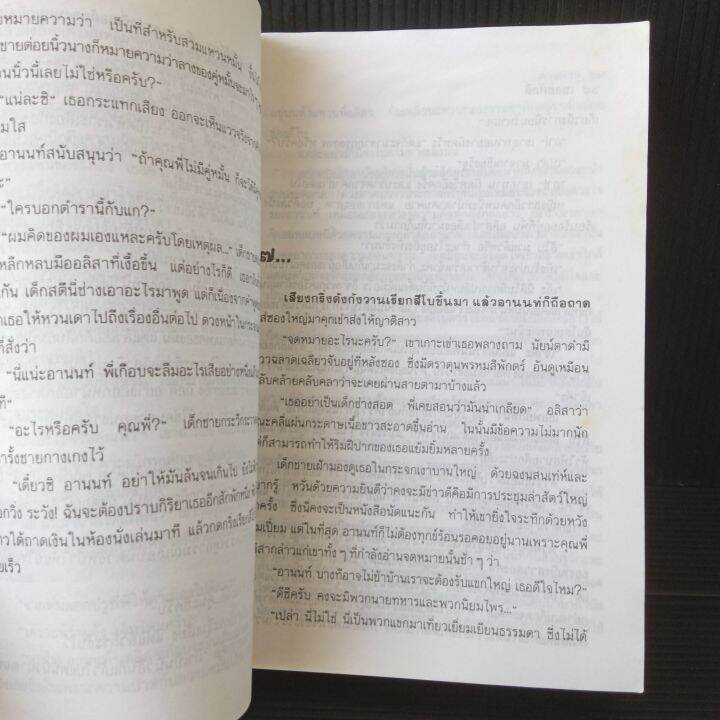 หมายความว่า เป็นที่สำหรับสวมแหวนหมั้น
ชายต่อยนิ้วนางก็หมายความว่าลางของคู่หมั้นจะมา
นนิ้วนี้เลยไม่ใช่หรือครับ?-
"แน่ละซิ" เธอกระแทกเสียง ออกจะเห็นแววจริงจาก
มใส
อานนท์สนับสนุนว่า "ถ้าคุณพี่ไม่มีคู่หมั้น ก็จะ
ะ"
"ใครบอกตำรานี้กับแก?-
"ผมคิดของผมเองแหละครับโดยเหตุผล..." เด็กชาย
หลีกหลบมืออลิสาที่เงื้อขึ้น แต่อย่างไรก็ดี เธอ
กัน เด็กสตีนี่ช่างเอาอะไรมาพูด แต่ก็เนื่องจาก
าเธอให้หวนเดาไปถึงเรื่องอื่นต่อไป ดวงหน้าใน
ที่สั่งว่า
"นี่แน่ะอานนท์ พี่เกือบจะลืมอะไรเสียอย่างหนึ่ง
ที"
"อะไรหรือครับ คุณพี่?" เด็กชาย
ารั้งชายกางเกงไว้
"เดี๋ยวซิ อานนท์ อย่าให้มันลันจนเกินไป
อกวิ่ง ระวัง! ฉันจะต้องปราบกิริยาเธออีกสักพักหนึ่ง
าวได้ถาดเงินในห้องนั่งเล่นมาที แล้วกดกริ่งเรียก
ยเร็ว
๗...
เสียงกริ่งดังก่งวานเรียกสีโบขึ้นมา แล้วอานนท์ก็ถือถาด
ส่ซองใหญ่มาคุกเข่าส่งให้ญาติสาว
"จดหมายอะไรนะครับ?" เขาเกาะเข่าเธอพลางถาม นัยน์ตาดำมี
ววฉลาดเฉลียวจับอยู่ที่หลังซอง ซึ่งมีตราดุนพรหมสี่พักตร์ อันดูเหมือน
ลับคล้ายคลับคลาว่าจะเคยผ่านสายตามาบ้างแล้ว
"เธออย่าเป็นเด็กช่างสอด พี่เคยสอนว่ามันน่าเกลียด" อลิสาว่า
ณะคลี่แผ่นกระดาษเนื้อขาวสะอาดขึ้นอ่าน ในนั้นมีข้อความไม่มากนัก
ต่ก็สามารถทำให้ริมฝีปากของเธอแย้มยิ้มหลายครั้ง
เด็กชายเฝ้ามองดูเธอในกระจกเงาบานใหญ่ ด้วยฉงนสนเท่ห์และ
ยากรู้ หวั่นด้วยความยินดีว่าคงจะมีข่าวดีคือมีการประชุมล่าสัตว์ใหญ่
ครั้ง ซึ่งนี่คงจะเป็นหนังสือนัดแนะกัน ทำให้เขายิ่งใจระทึกด้วยหวัง
มเปี่ยม แต่ในที่สุด อานนท์ก็ไม่ต้องทุกข์ร้อนรอคอยอยู่นานเพราะคุณพี่
สากล่าวแก่เขาทั้ง ๆ ที่กำลังอ่านจดหมายนั้นซ้ำ ๆ ว่า
"อานนท์ บางทีอาจไม่ช้าบ้านเราจะต้องรับแขกใหญ่ เธอดีใจไหม?"
"ดีซีครับ คงจะมีพวกนายทหารและพวกนิยมไพร..."
"เปล่า นี่ไม่ใช่ นี่เป็นพวกแขกมาเที่ยวเยี่ยมเยียนธรรมดา ซึ่งไม่ได้